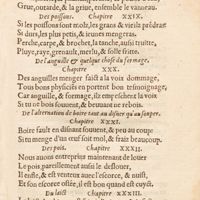 Grue, outarde, & la griue, ensemble le vanneau.
Des poissons. Chapitre XXIX.
Si les poissons sont mols, les grans & vieils prédras
Si ils sont durs, plus petis, & ieunes mengeras.
Perche, carpe, & brochet, la tanche, aussi truitte,
Pluye, raye, grenault, merlu, & solle fritte.
De l'anguille & quelque chose du formage.
Chapitre XXX.
Des anguilles menger faict à la voix dommage,
Tous bons physiciēs en portent bon tesmoignage,
Car anguille, & formage, ilz empeschent la voix
Si tu ne bois souuent, & beuuant ne rebois.
De l'alternation de boire tant au disner qu'au souper.
Chapitre XXXI.
Boire fault en disnant souuent, & peu au coup
Si tu menge d'un œuf soit mol, & frais beaucoup.
Des pois. Chapitre XXXII.
Nous auons entreprins maintenant de louer
Les pois pareillement aussi le desloüer,
Il enfle, & est venteux auec l'escorce, & nuist,
Et son escorce ostée, il est bon quand est cuyt.
Du laict Chapitre XXXIII.